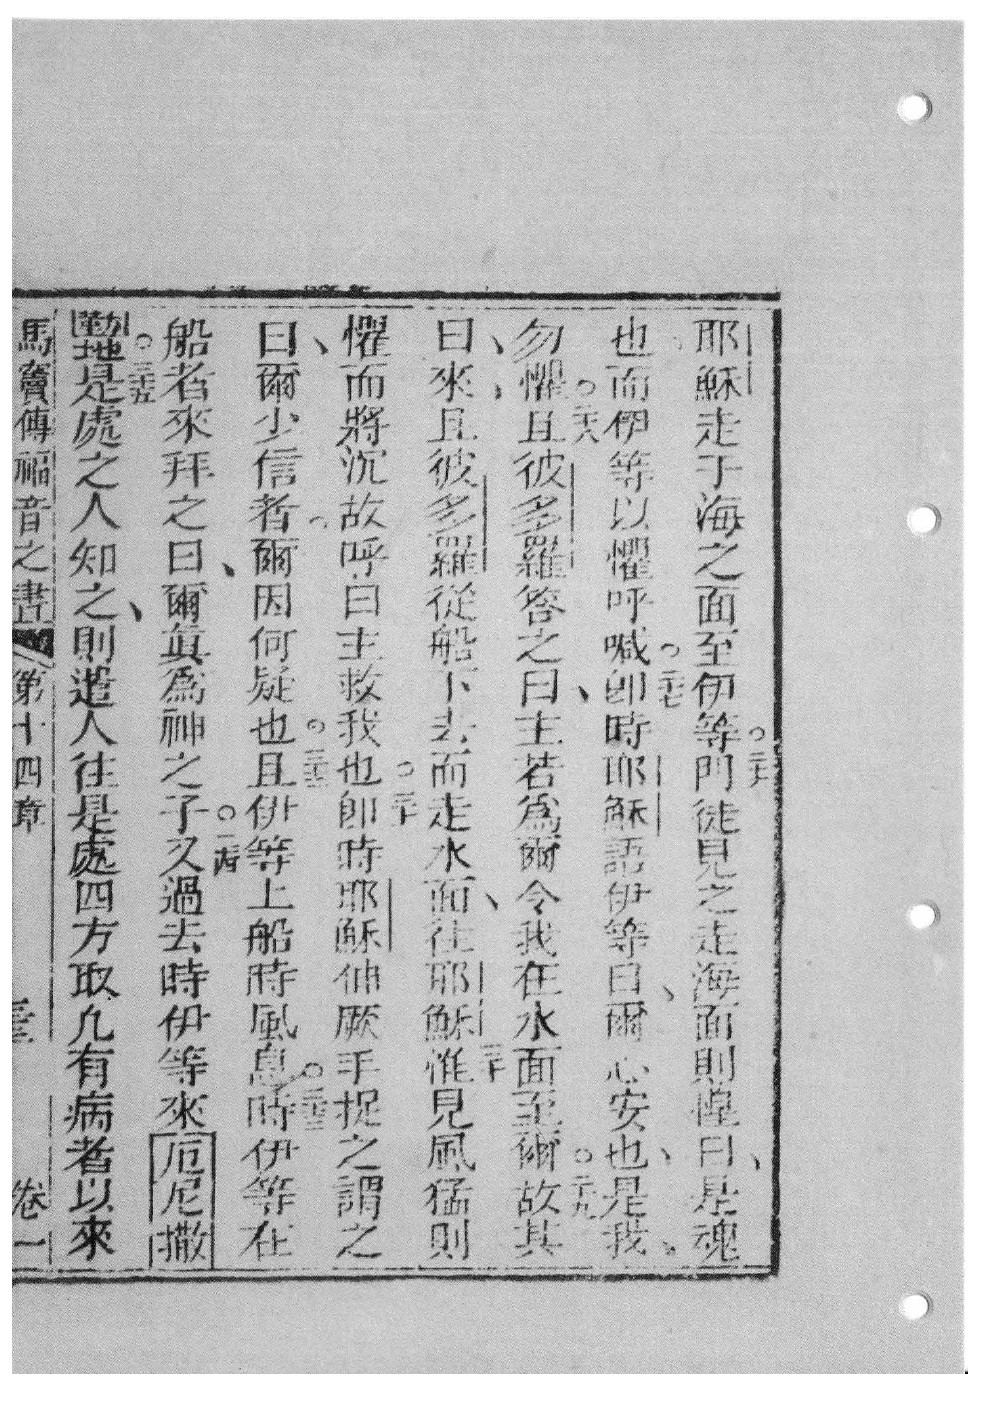 耶穌走于海之面至伊等○二六門徒見之走海面則惶曰、是魂
也而伊等以懼呼喊○二七即時耶穌語伊等曰、爾心安也、是我、
勿懼○二八且彼多羅答之曰、主若為爾令我在水面至爾○二九故其
曰、來、且彼多羅從船下去而走水面、往耶穌三十惟見風猛則
懼而將沉故呼曰主救我也○三一即時耶穌伸厥手捉之謂之
曰、爾少信者爾因何疑也○三二且伊等上船時風息○三三時伊等在
船者來拜之曰、爾真為神之子○三四久過去時伊等來厄尼撒
勒地○三五是處之人知之、則遣人往是處四方取凡有病者以來
馬竇傳福音之書 第十四章 卷一